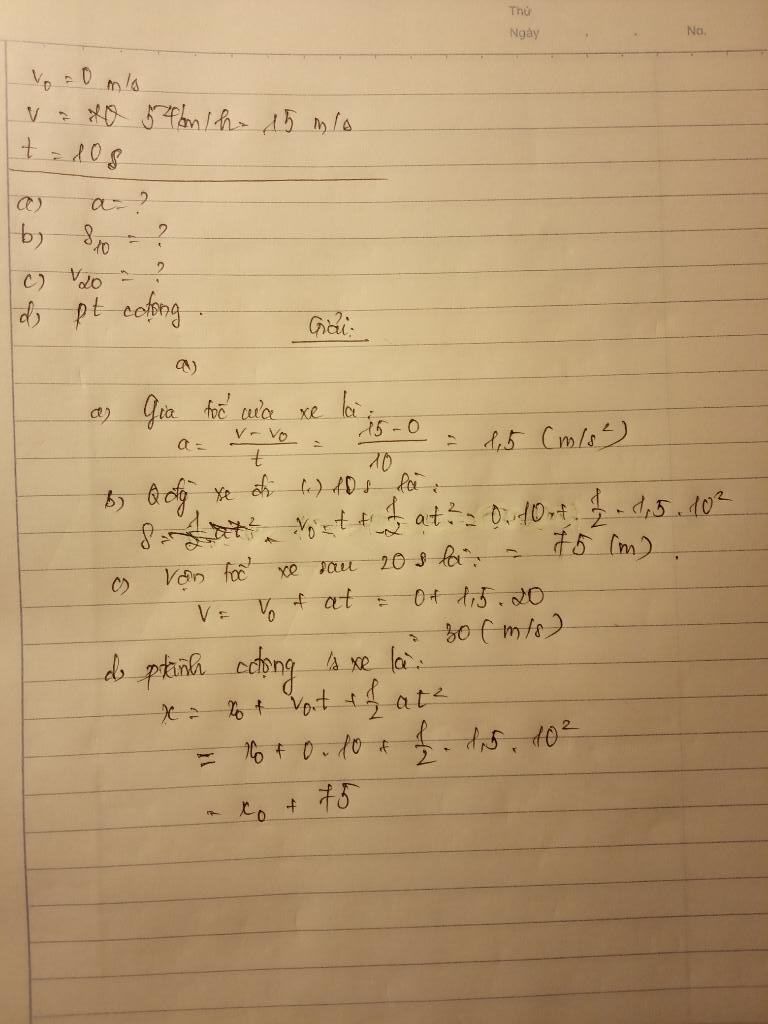 Thứ
Ngày . . No.
v₀ = 0 m/s
v = 54km/h = 15 m/s
t = 10s
a) a = ?
b) s₁₀ = ?
c) v₂₀ = ?
d) pt cđộng.
Giải:
a)
a) Gia tốc của xe là:
a = (v - v₀)/t = (15 - 0)/10 = 1,5 (m/s²)
b) Qđg xe đi (.) 10s là:
s = 1/2 at² = v₀ = t + 1/2 at² = 0.10 + 1/2 . 1,5 . 10²
= 75 (m).
c) Vận tốc xe sau 20s là:
v = v₀ + at = 0 + 1,5 . 20
= 30 (m/s)
d) ptrình cđộng xe là:
x = x₀ + v₀.t + 1/2 at²
= x₀ + 0.10 + 1/2 . 1,5 . 10²
= x₀ + 75